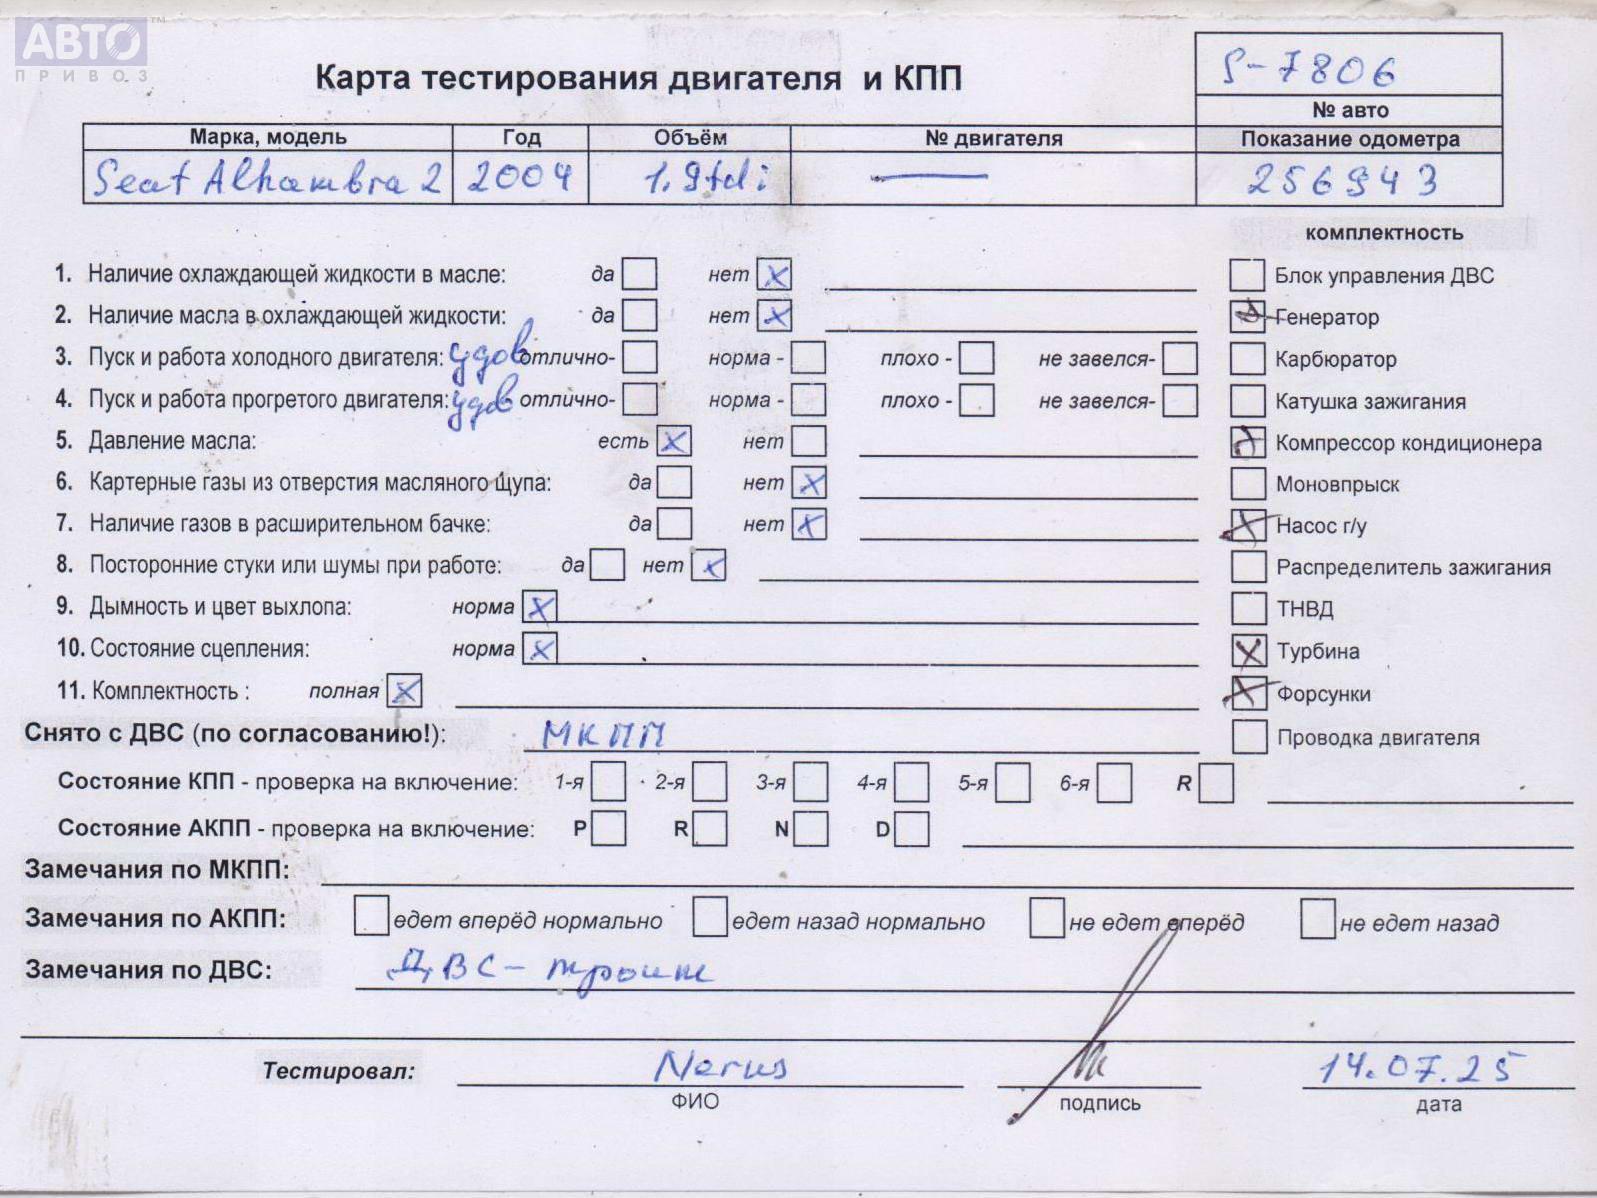 АВТО ПРИВОЗ ™
Карта тестирования двигателя и КПП
S-7806
№ авто
Марка, модель Год Объём № двигателя Показание одометра
Seat Alhambra 2 2004 1.9tdi — 256943
комплектность
1. Наличие охлаждающей жидкости в масле: да нет x Блок управления ДВС
2. Наличие масла в охлаждающей жидкости: да нет x Генератор
3. Пуск и работа холодного двигателя: удов отлично- норма - плохо - не завелся- Карбюратор
4. Пуск и работа прогретого двигателя: удов отлично- норма - плохо - не завелся- Катушка зажигания
5. Давление масла: есть x нет Компрессор кондиционера
6. Картерные газы из отверстия масляного щупа: да нет x Моновпрыск
7. Наличие газов в расширительном бачке: да нет x x Насос г/у
8. Посторонние стуки или шумы при работе: да нет x Распределитель зажигания
9. Дымность и цвет выхлопа: норма x ТНВД
10. Состояние сцепления: норма x x Турбина
11. Комплектность : полная x x Форсунки
Снято с ДВС (по согласованию!): МКПП Проводка двигателя
Состояние КПП - проверка на включение: 1-я 2-я 3-я 4-я 5-я 6-я R
Состояние АКПП - проверка на включение: P R N D
Замечания по МКПП:
Замечания по АКПП: едет вперёд нормально едет назад нормально не едет вперёд не едет назад
Замечания по ДВС: ДВС - троит
Тестировал: 14.07.25
ФИО подпись дата